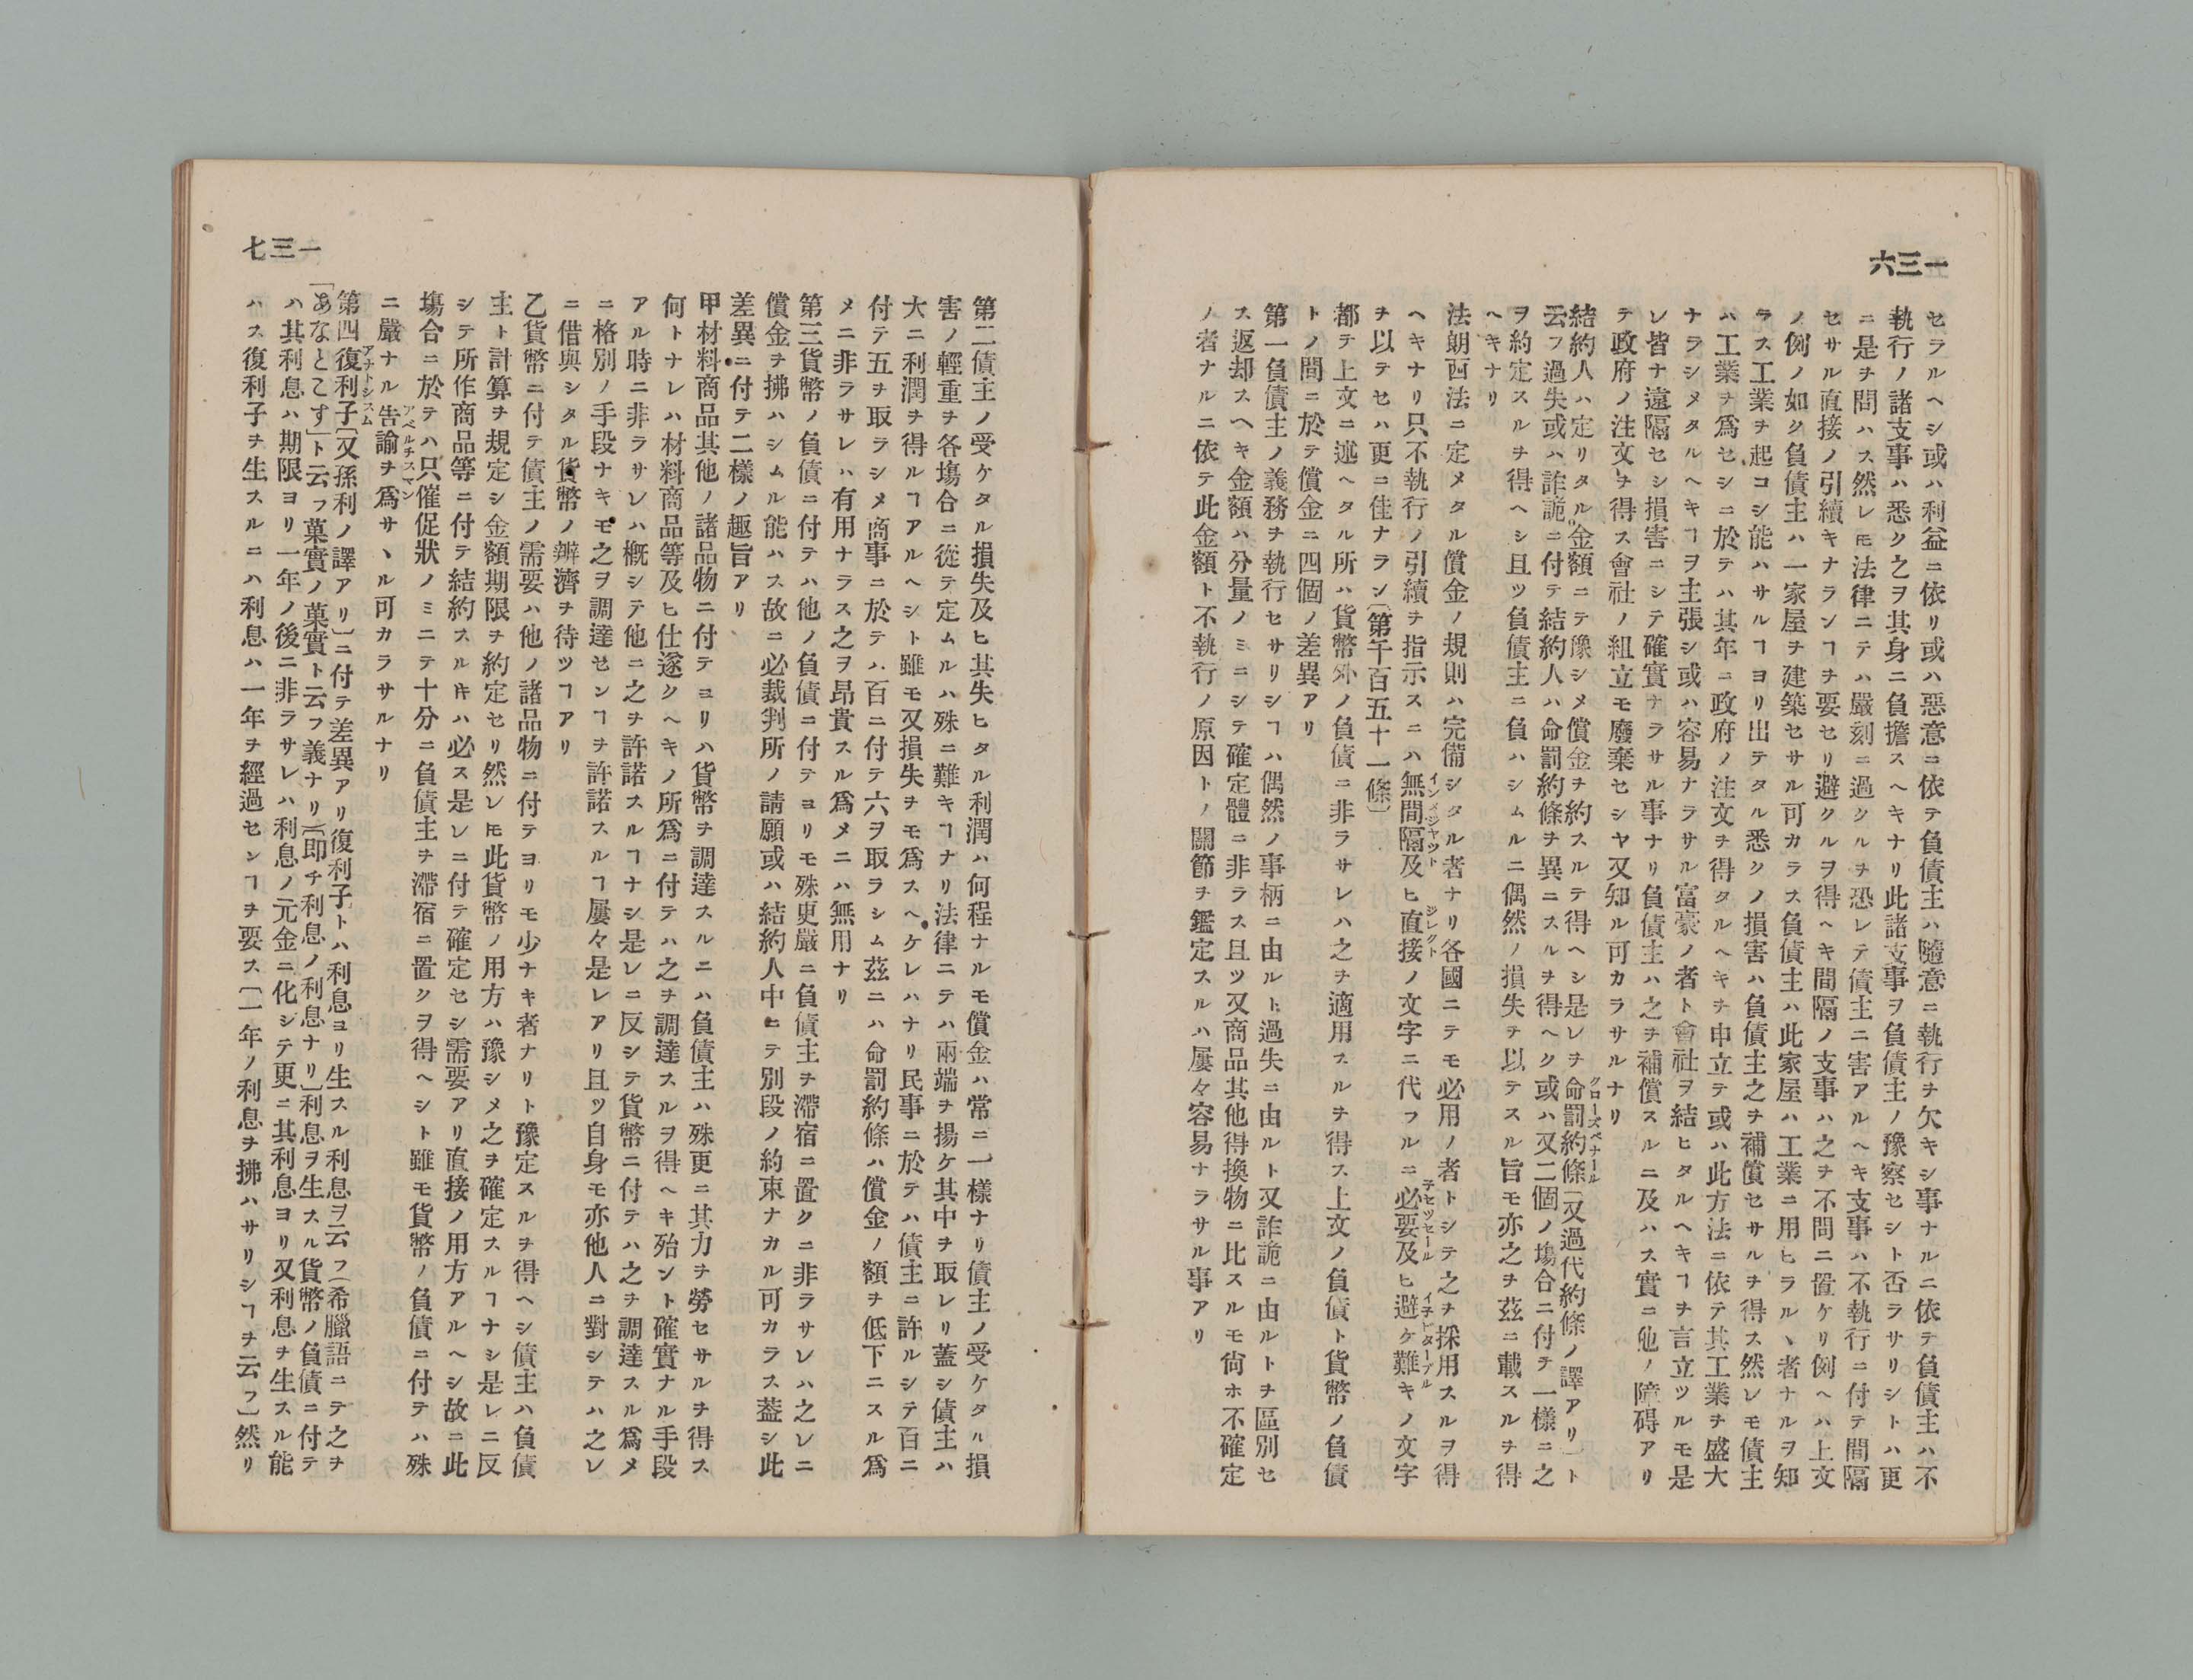 一三六
セラルヘシ或ハ利益ニ依リ或ハ惡意ニ依テ負債主ハ隨意ニ執行ヲ欠キシ事ナルニ依テ負債主ハ不
執行ノ諸支事ハ悉ク之ヲ其身ニ負擔スヘキナリ此諸支事ヲ負債主ノ豫察セシト否ラサリシトハ更
ニ是ヲ問ハス然レ𪜈法律ニテハ嚴刻ニ過クルヲ恐レテ債主ニ害アルヘキ支事ハ不執行ニ付テ間隔
セサル直接ノ引續キナランヿヲ要セリ避クルヲ得ヘキ間隔ノ支事ハ之ヲ不問ニ置ケリ例ヘハ上文
ノ例ノ如ク負債主ハ一家屋ヲ建築セサル可カラス負債主ハ此家屋ハ工業ニ用ヒラルヽ者ナルヲ知
ラス工業ヲ起コシ能ハサルヿヨリ出テタル悉クノ損害ハ負債主之ヲ補償セサルヲ得ス然レモ債主
ハ工業ヲ爲セシニ於テハ其年ニ政府ノ注文ヲ得タルヘキヲ申立テ或ハ此方法ニ依テ其工業ヲ盛大
ナラシメタルヘキヿヲ主張シ或ハ容易ナラサル富豪ノ者ト會社ヲ結ヒタルヘキヿヲ言立ツルモ是
レ皆ナ遠隔セシ損害ニシテ確實ナラサル事ナリ負債主ハ之ヲ補償スルニ及ハス實ニ他ノ障碍アリ
テ政府ノ注文ヲ得ス會社ノ組立モ廢棄セシヤ又知ル可カラサルナリ
結約人ハ定リタル金額ニテ豫シメ償金ヲ約スルテ得ヘシ是レヲ命罰約條〔又過代約條ノ譯アリ〕ト
クローズペナール
云フ過失或ハ詐詭ニ付テ結約人ハ命罰約條ヲ異ニスルヲ得ヘク或ハ又二個ノ塲合ニ付テ一樣ニ之
ヲ約定スルヲ得ヘシ且ツ負債主ニ負ハシムルニ偶然ノ損失ヲ以テスル旨モ亦之ヲ茲ニ載スルヲ得
ヘキナリ
法朗西法ニ定メタル償金ノ規則ハ完備シタル者ナリ各國ニテモ必用ノ者トシテ之ヲ採用スルヲ得
ヘキナリ只不執行ノ引續ヲ指示スニハ無間隔及ヒ直接ノ文字ニ代フルニ必要及ヒ避ケ難キノ文字
インメジヤツト　ジレクト　子セツセール　イ子ビターブル
ヲ以テセハ更ニ佳ナラン〔第千百五十一條〕
都テ上文ニ述ヘタル所ハ貨幣外ノ負債ニ非ラサレハ之ヲ適用スルヲ得ス上文ノ負債ト貨幣ノ負債
トノ間ニ於テ償金ニ四個ノ差異アリ
第一負債主ノ義務ヲ執行セサリシヿハ偶然ノ事柄ニ由ルト過失ニ由ルト又詐詭ニ由ルトヲ區別セ
ス返却スヘキ金額ハ分量ノミニシテ確定體ニ非ラス且ツ又商品其他得換物ニ比スルモ尙ホ不確定
ノ者ナルニ依テ此金額ト不執行ノ原因トノ關節ヲ鑑定スルハ屢々容易ナラサル事アリ
一三七
第二債主ノ受ケタル損失及ヒ其失ヒタル利潤ハ何程ナルモ償金ハ常ニ一樣ナリ債主ノ受ケタル損
害ノ輕重ヲ各塲合ニ從テ定ムルハ殊ニ難キヿナリ法律ニテハ兩端ヲ揚ケ其中ヲ取レリ蓋シ債主ハ
大ニ利潤ヲ得ルヿアルヘシト雖モ又損失ヲモ爲スヘケレハナリ民事ニ於テハ債主ニ許ルシテ百ニ
付テ五ヲ取ラシメ商事ニ於テハ百ニ付テ六ヲ取ラシム茲ニハ命罰約條ハ償金ノ額ヲ低下ニスル爲
メニ非ラサレハ有用ナラス之ヲ昂貴スル爲メニハ無用ナリ
第三貨幣ノ負債ニ付テハ他ノ負債ニ付テヨリモ殊更嚴ニ負債主ヲ滯宿ニ置クニ非ラサレハ之レニ
償金ヲ拂ハシムル能ハス故ニ必裁判所ノ請願或ハ結約人中ニテ別段ノ約束ナカル可カラス葢シ此
差異ニ付テ二樣ノ趣旨アリ
甲材料商品其他ノ諸品物ニ付テヨリハ貨幣ヲ調達スルニハ負債主ハ殊更ニ其力ヲ勞セサルヲ得ス
何トナレハ材料商品等及ヒ仕遂クヘキノ所爲ニ付テハ之ヲ調達スルヲ得ヘキ殆ント確實ナル手段
アル時ニ非ラサレハ槪シテ他ニ之ヲ許諾スルヿナシ是レニ反シテ貨幣ニ付テハ之ヲ調達スル爲メ
ニ格別ノ手段ナキモ之ヲ調達センヿヲ許諾スルヿ屢々是レアリ且ツ自身モ亦他人ニ對シテハ之レ
ニ借與シタル貨幣ノ辨濟ヲ待ツヿアリ
乙貨幣ニ付テ債主ノ需要ハ他ノ諸品物ニ付テヨリモ少ナキ者ナリト豫定スルヲ得ヘシ債主ハ負債
主ト計算ヲ規定シ金額期限ヲ約定セリ然レ𪜈此貨幣ノ用方ハ豫シメ之ヲ確定スルヿナシ是レニ反
シテ所作商品等ニ付テ結約スル𪜈ハ必ス是レニ付テ確定セシ需要アリ直接ノ用方アルヘシ故ニ此
塲合ニ於テハ只催促狀ノミニテ十分ニ負債主ヲ滯宿ニ置クヲ得ヘシト雖モ貨幣ノ負債ニ付テハ殊
ニ嚴ナル告諭ヲ爲サヽル可カラサルナリ
アベルチスマン
第四復利子〔又孫利ノ譯アリ〕ニ付テ差異アリ復利子トハ利息ヨリ生スル利息ヲ云フ（希臘語ニテ之ヲ
アナトシスム
「あなとこす」ト云フ菓實ノ菓實ト云フ義ナリ）〔即チ利息ノ利息ナリ〕利息ヲ生スル貨幣ノ負債ニ付テ
ハ其利息ハ期限ヨリ一年ノ後ニ非ラサレハ利息ノ元金ニ化シテ更ニ其利息ヨリ又利息ヲ生スル能
ハス復利子ヲ生スルニハ利息ハ一年ヲ經過センヿヲ要ス〔一年ノ利息ヲ拂ハサリシヿヲ云フ〕然リ